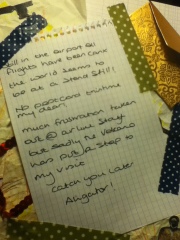 Still in the airport eek
flights have been canc
the world seems to
be at a Stand Still!
No popcorn
my dear!
much frustration taken
out @ airline staff
but sadly the Volcano
has put a stop to
my visit
catch you later
Aligator!